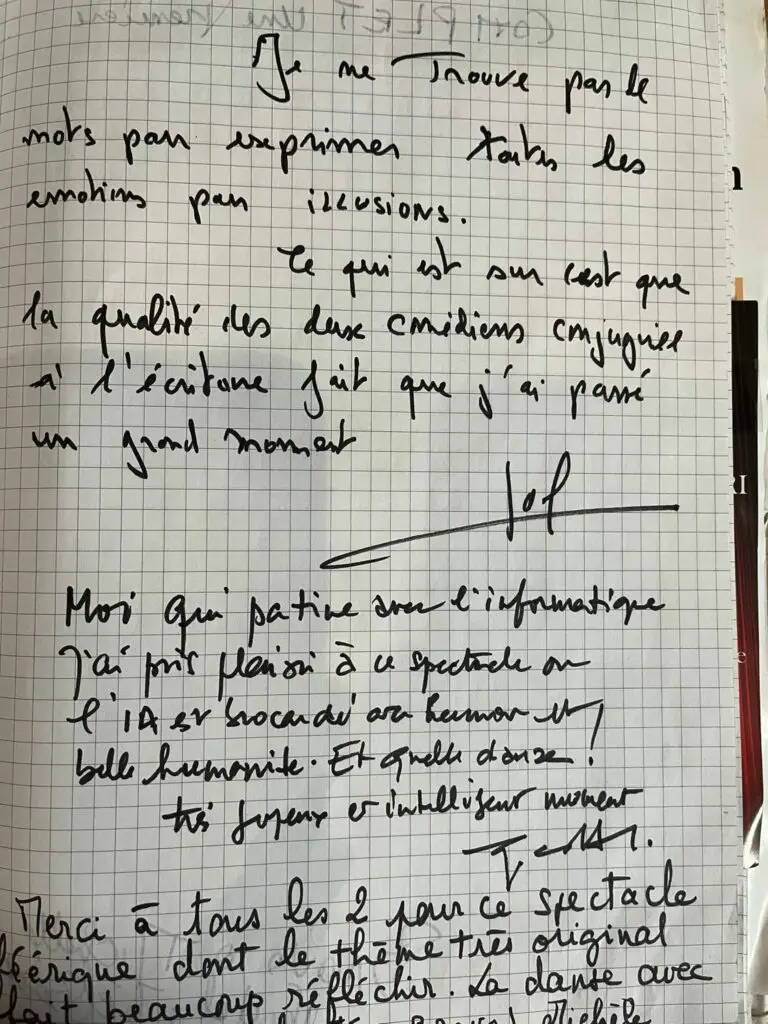 Je ne Trouve pas le
mots pour exprimer toutes les
emotions par ILLUSIONS.
Ce qui est sur c'est que
la qualité des deux comédiens conjuguée
à l'écriture fait que j'ai passé
un grand moment
Moi qui patine avec l'informatique
j'ai pris plaisir à ce spectacle ou
l'IA est brocardé avec humour et
belle humanité. Et quelle danse !
très joyeux et intelligent moment
Merci à tous les 2 pour ce spectacle
féérique dont le thème très original
fait beaucoup réfléchir. La danse avec
Bravo! Michèle